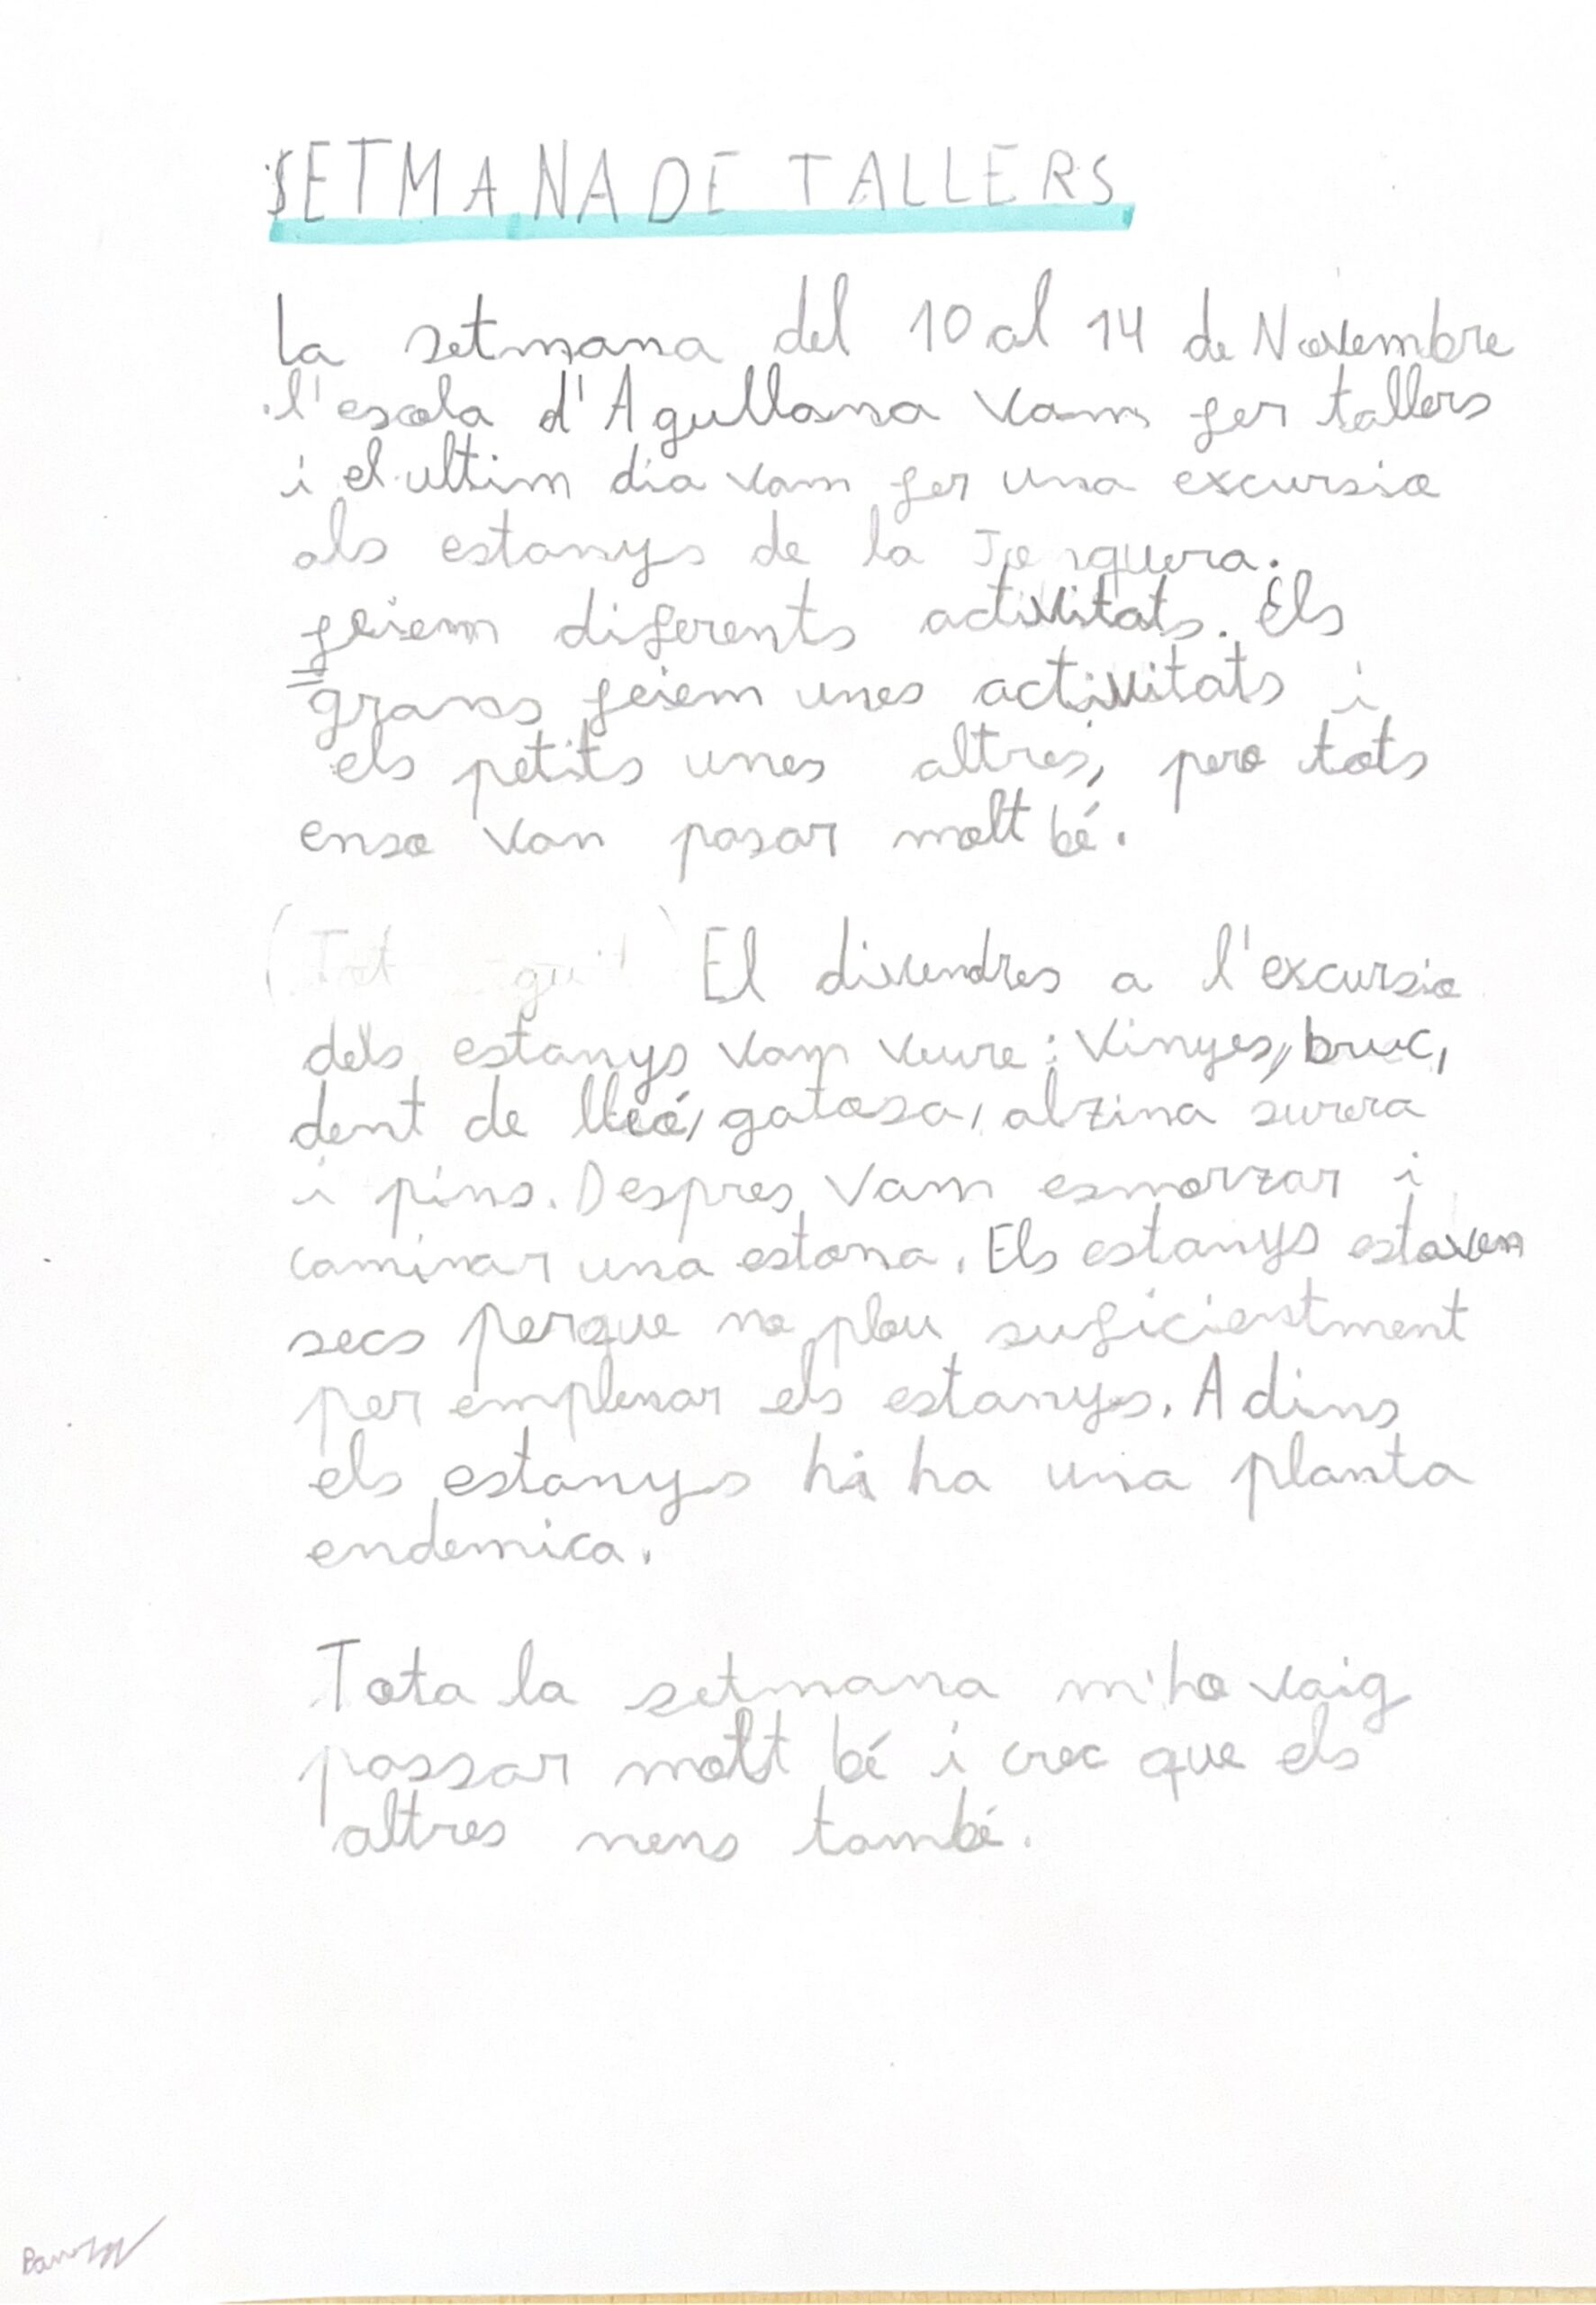 SETMANA DE TALLERS
La setmana del 10 al 14 de Novembre
l'escola d'Agullana vam fer tallers
i el ultim dia vam fer una excursio
als estanys de la Jonquera.
feiem diferents activitats. Els
grans feiem unes activitats i
els petits unes altres, pero tots
enso van pasar molt bé.
(Tot) El divendres a l'excursio
dels estanys vam veure: Vinyes, bruc,
dent de lleó, gatosa, alzina surera
i pins. Despres vam esmorzar i
caminar una estona. Els estanys estaven
secs perque no plou suficientment
per emplenar els estanys. A dins
els estanys hi ha una planta
endemica.
Tota la setmana m'ho vaig
passar molt bé i crec que els
altres nens també.